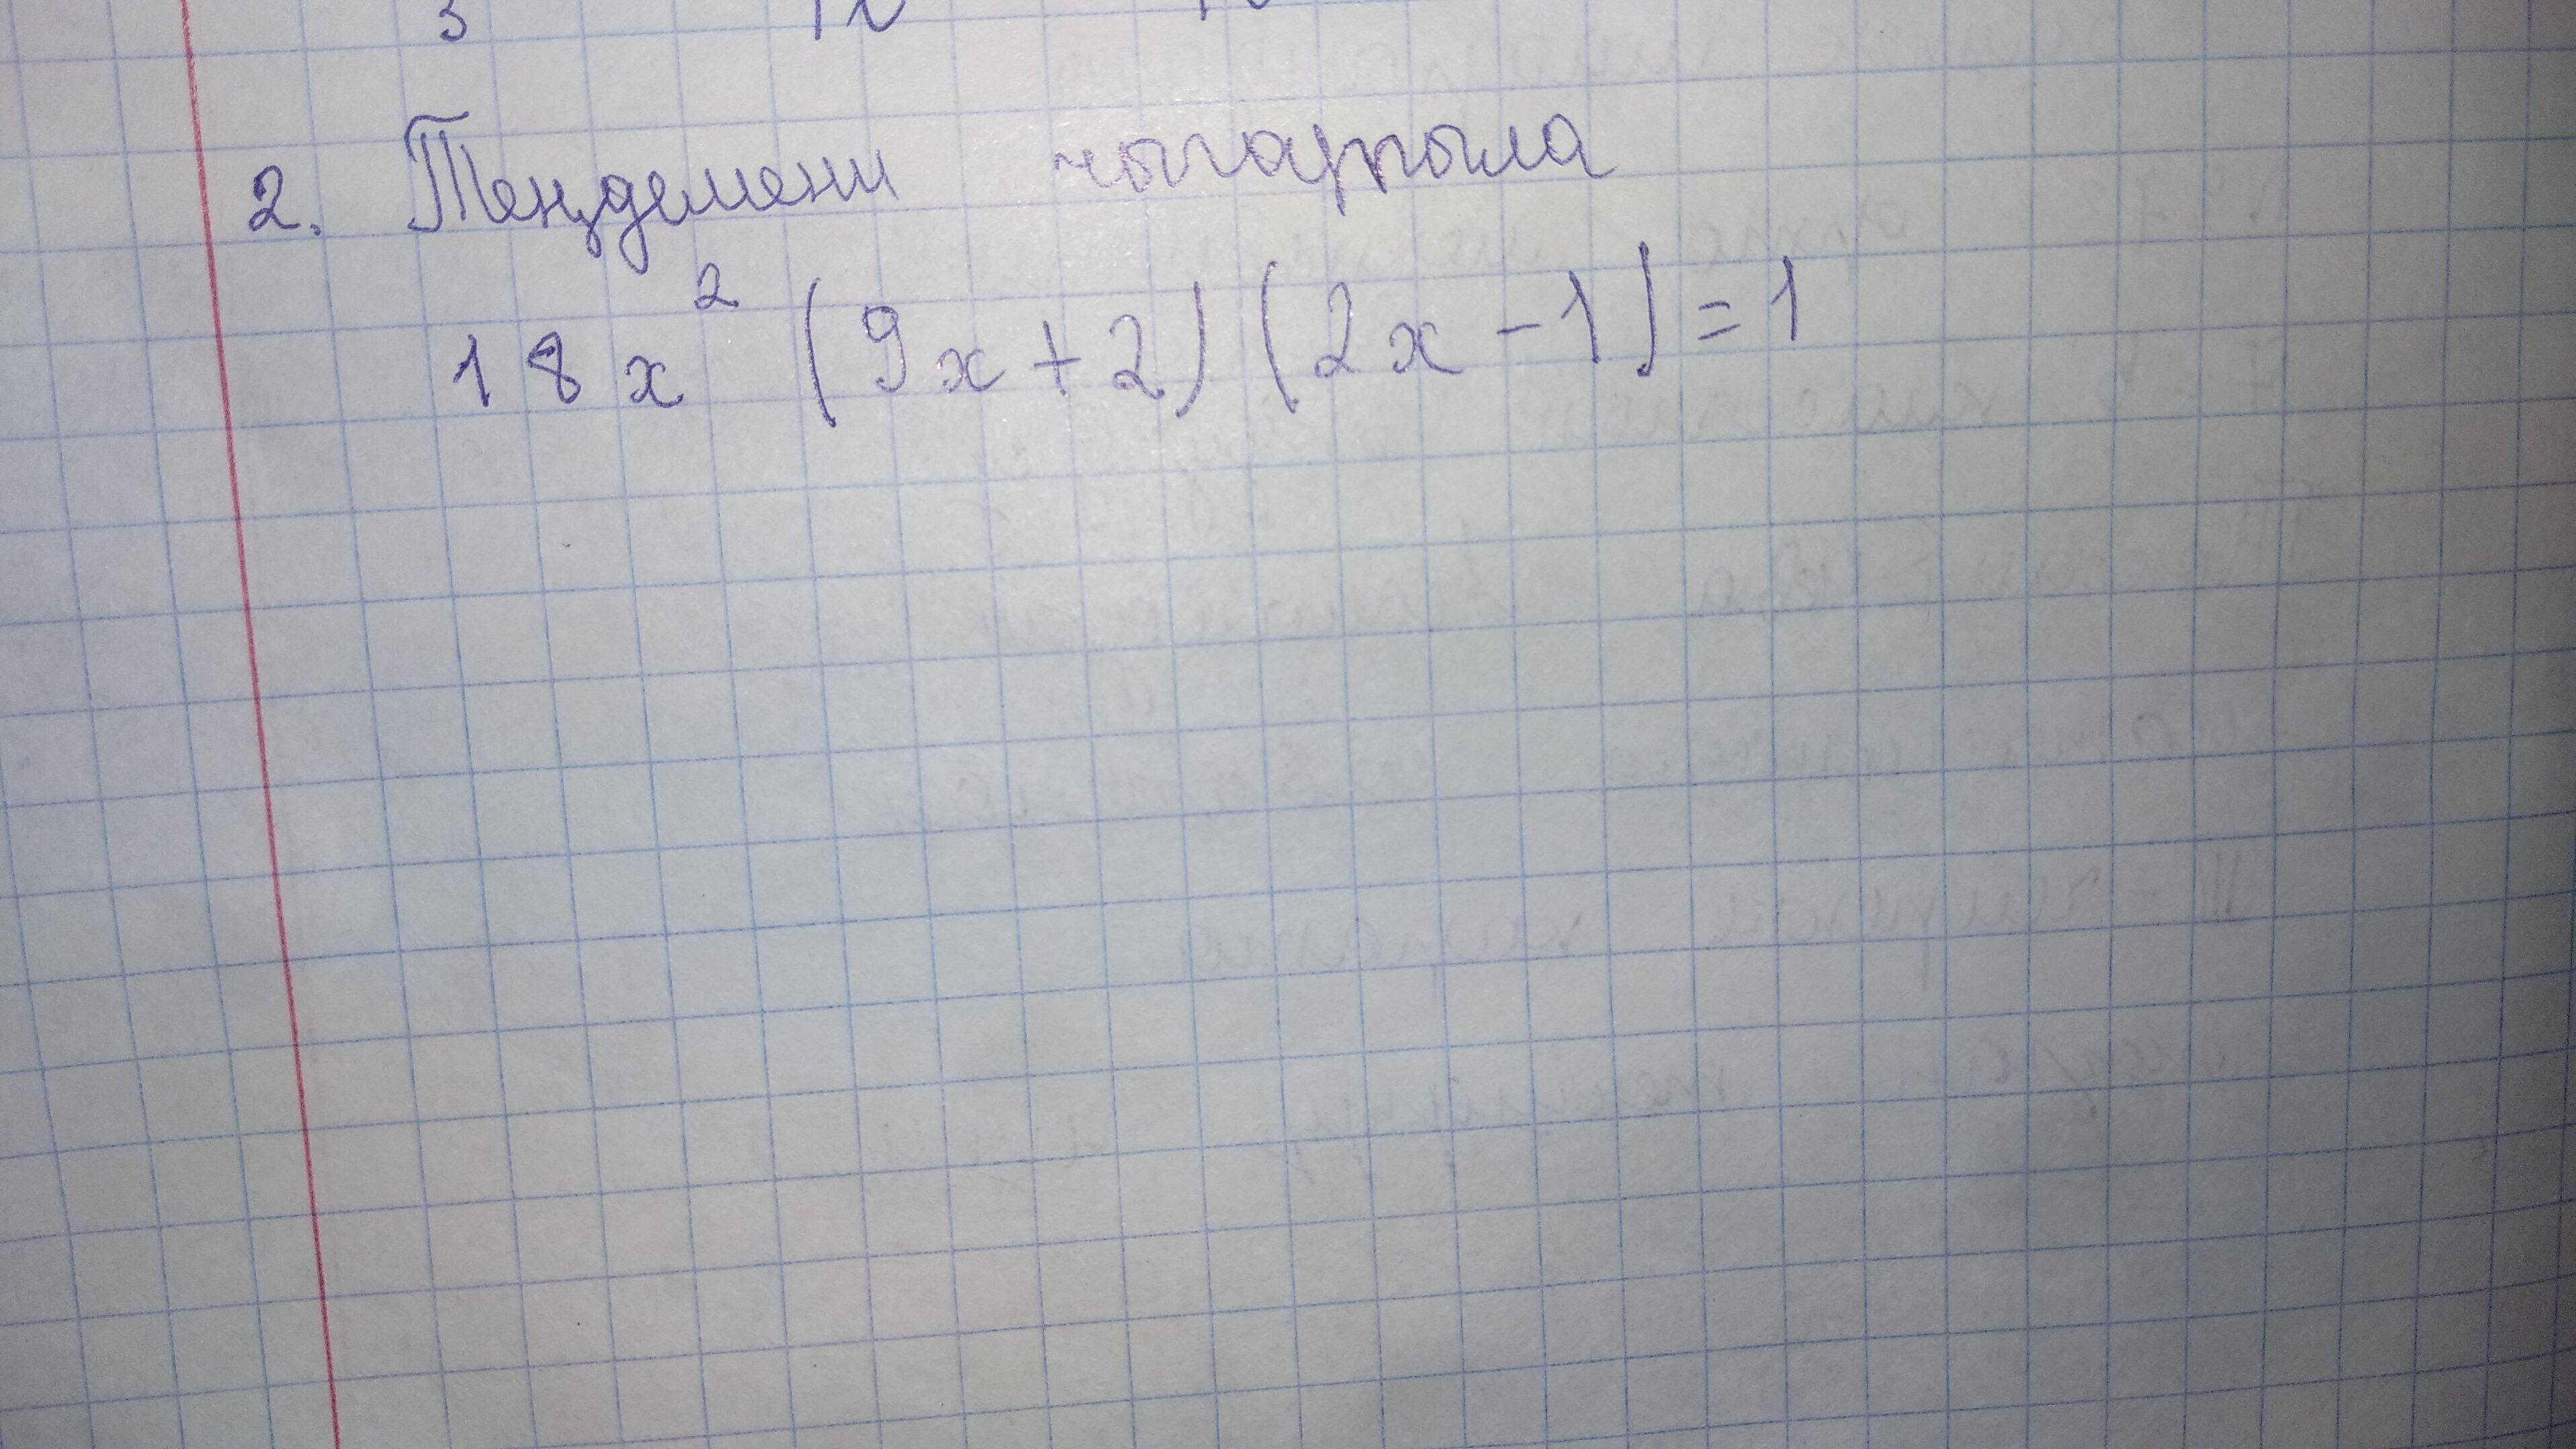 2. Теңдемени чыгарыла
18x² (9x+2) (2x-1)=1